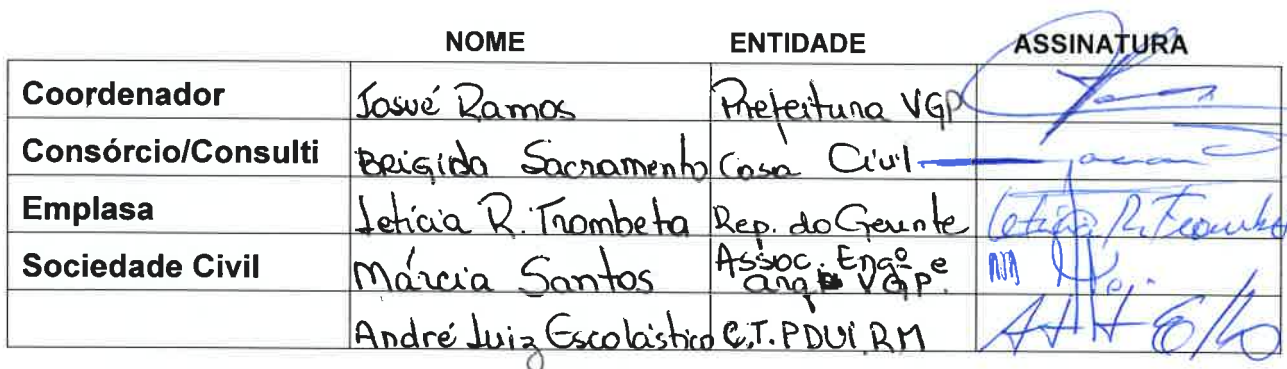 NOME ENTIDADE ASSINATURA
Coordenador Josué Ramos Prefeitura VGP
Consórcio/Consulti Brigida Sacramento Casa Civil
Emplasa Letícia R. Trombeta Rep. do Gerente Letícia R. Trombeta
Sociedade Civil Márcia Santos Assoc. Engº e
arq VGP.
André Luiz Escolástico C.T. PDUI RM